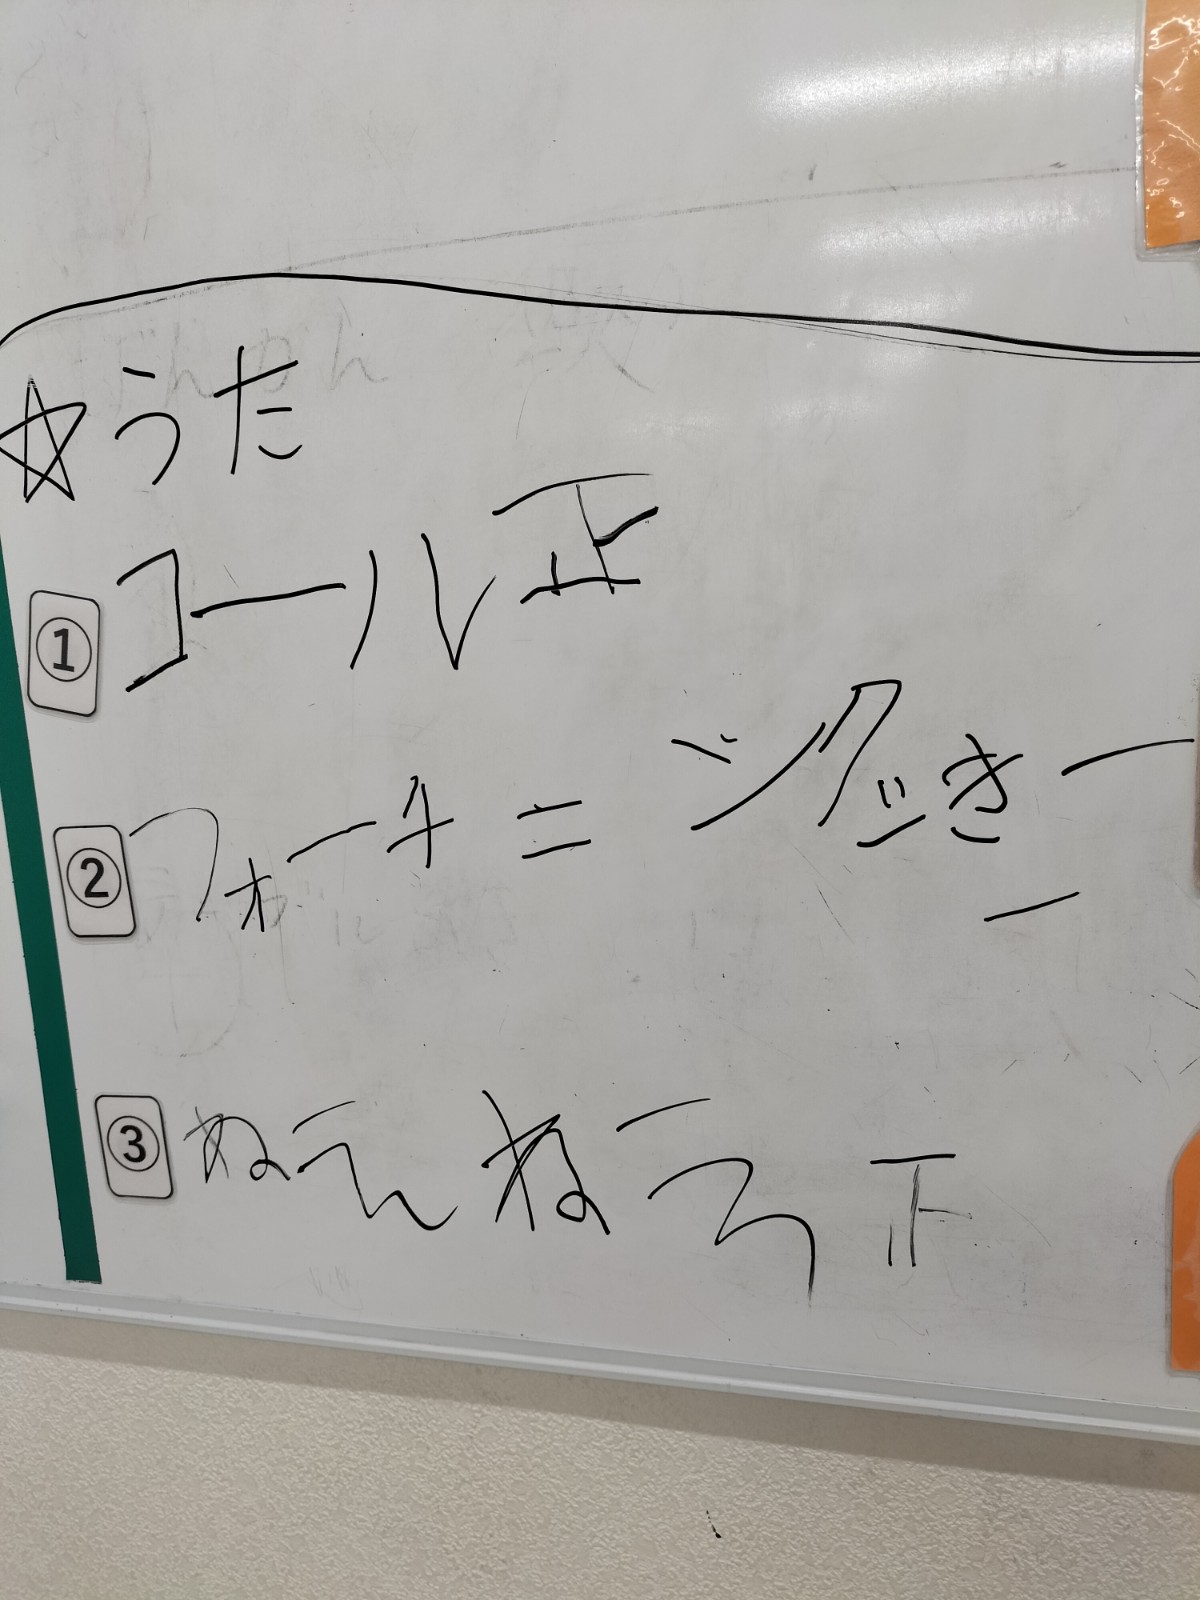 ☆うた
① コール正
② フォーチュンクッキー 一
③ ねえねえ 下